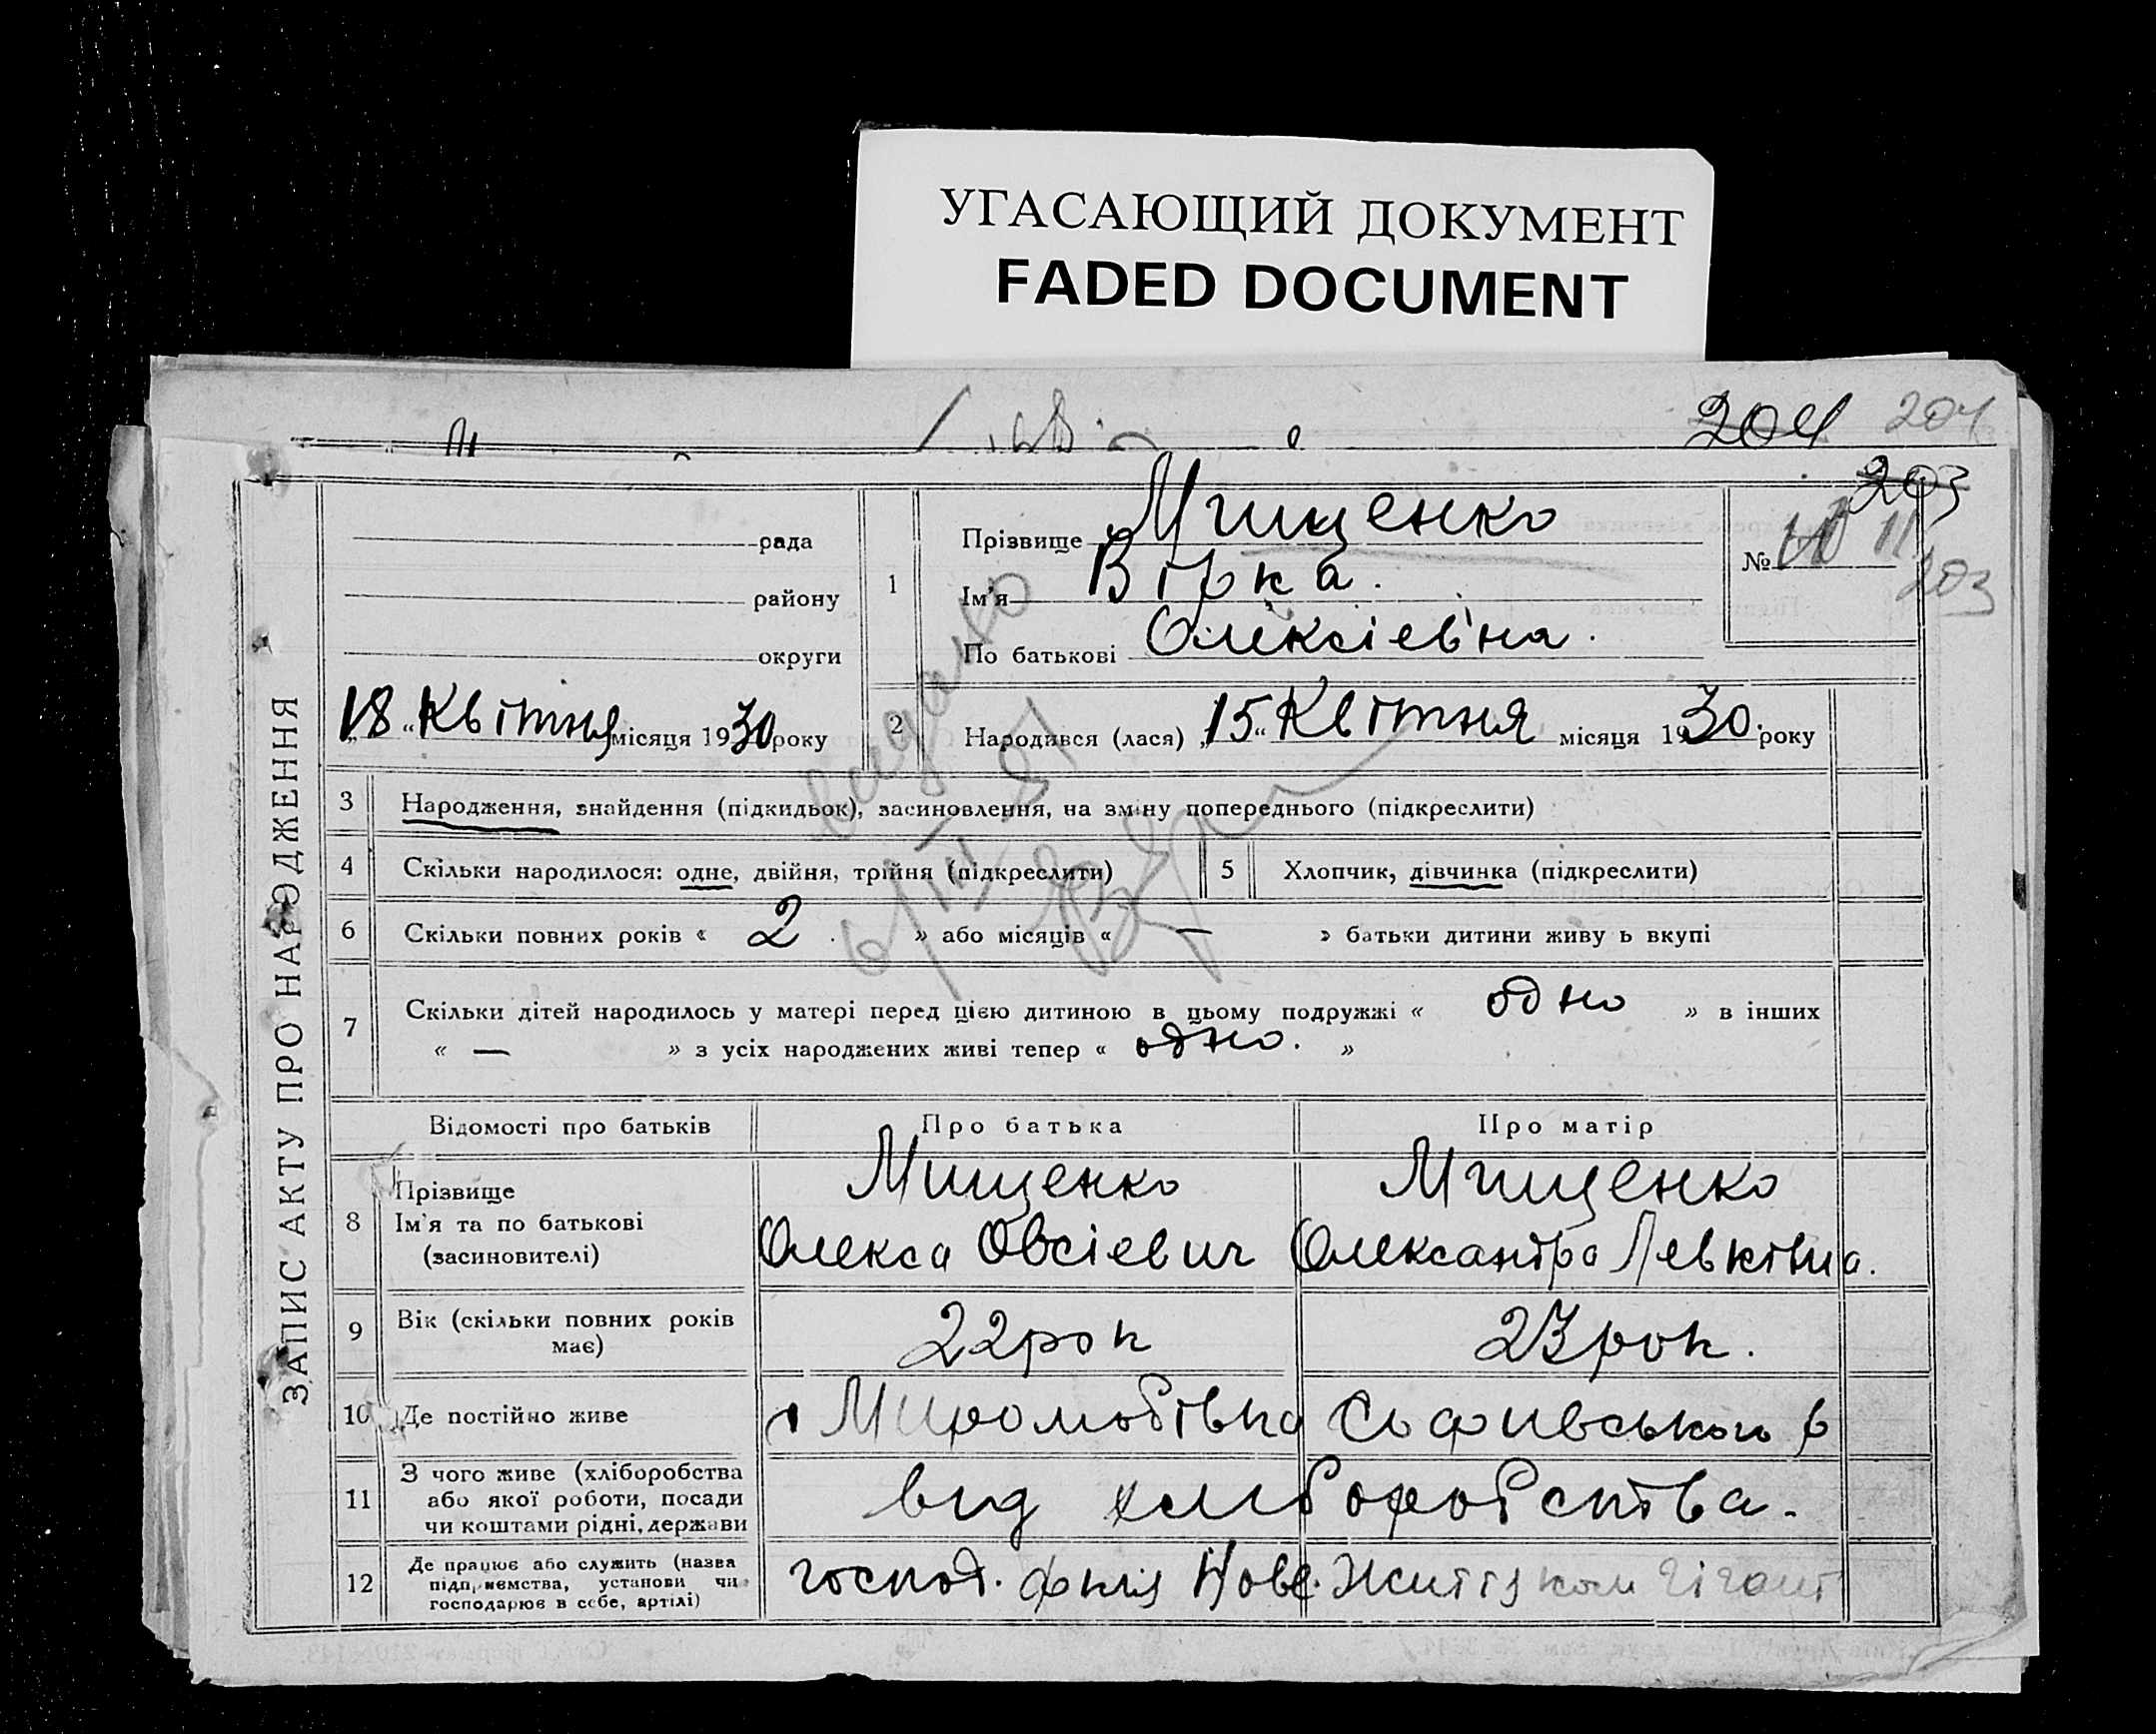 УГАСАЮЩИЙ ДОКУМЕНТ
FADED DOCUMENT
204 204
203
203
ЗАПИС АКТУ ПРО НАРОДЖЕННЯ
рада
району
округи
„18“ Квітня місяця 1930 року
1
Прізвище Мищенко
Ім'я Вірка.
По батькові Олексіевна.
№ 11
2
Народився (лася) „15“ Квітня місяця 1930. року
видано
3 Народження, знайдення (підкидьок), засиновлення, на зміну попереднього (підкреслити)
4 Скільки народилося: одне, двійня, трійня (підкреслити)
5 Хлопчик, дівчинка (підкреслити)
6 Скільки повних років « 2 . » або місяців « — » батьки дитини живу ь вкупі
7 Скільки дітей народилось у матері перед цією дитиною в цьому подружжі « одно » в інших
« — » з усіх народжених живі тепер « одно. »
Відомості про батьків Про батька Про матір
8 Прізвище Мищенко Мищенко
Ім'я та по батькові
(засиновителі) Олекса Овсіевич Олександра Левківна.
9 Вік (скільки повних років має) 22 рок 23 рок.
10 Де постійно живе Миролюбівка Софиівського р
11 З чого живе (хліборобства
або якої роботи, посади
чи коштами рідні, держави від хліборобства.
12 Де працює або служить (назва
підприємства, установи чи
господарює в себе, артілі) господ. філія Нове Життя ком Гігант